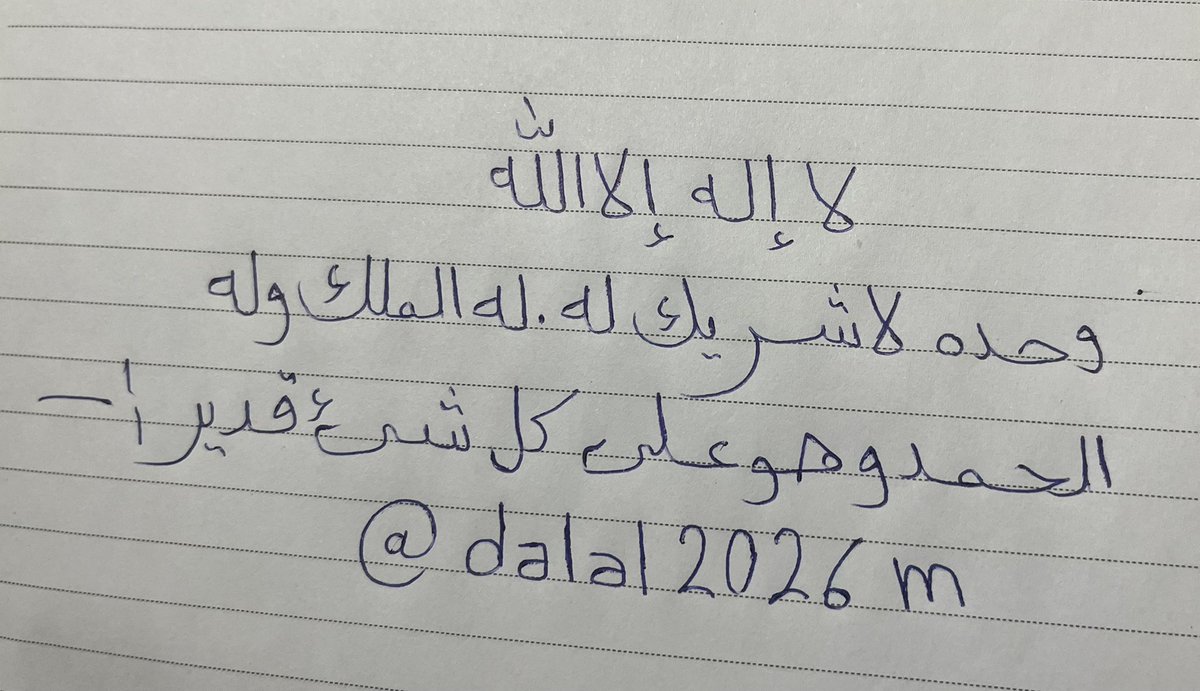 لا إله إلا الله
وحده لا شريك له . له الملك وله
الحمد وهو على كل شئ قدير اً
@dalal2026m